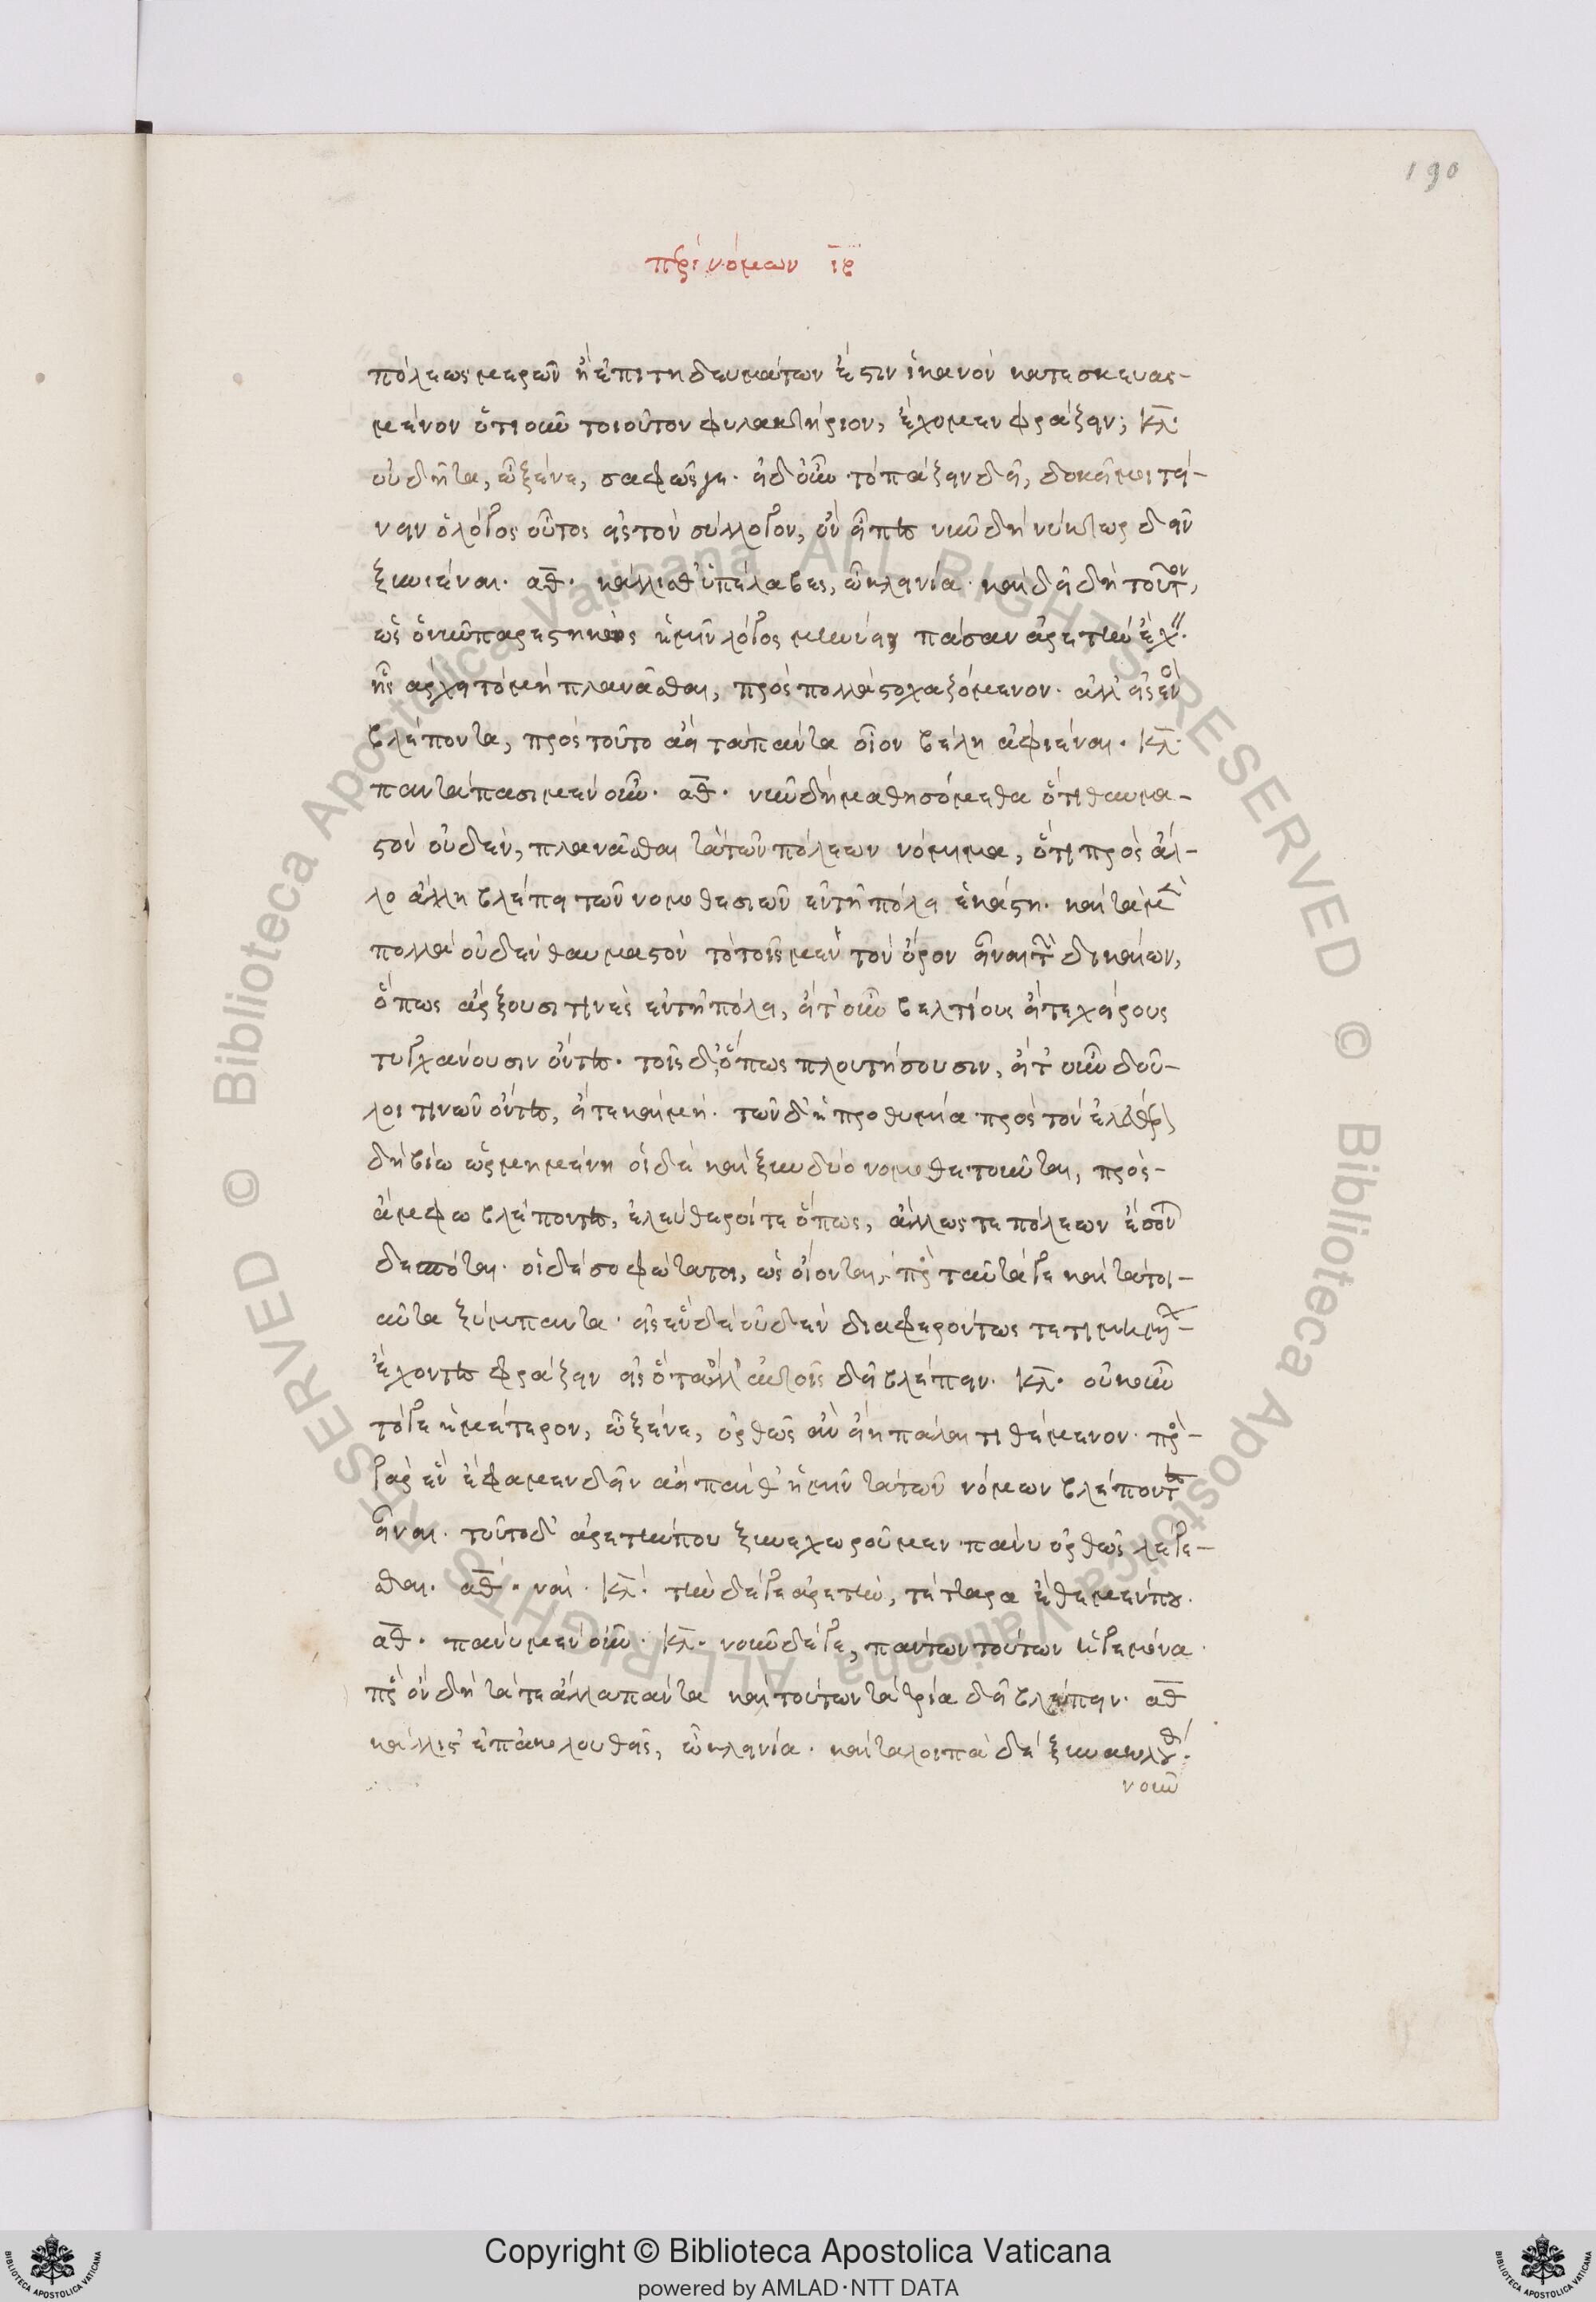 περὶ νόμων ιβ
πόλεως μερῶν ἢ ἐπιτηδευμάτων ἐστὶν ἱκανὸν κατεσκευας-
μένον ὁτιοῦν τοιοῦτον φυλακτήριον, ἔχομεν φράζειν; κλ.
οὐ δῆτα, ὦ ξένε, σαφῶς γε. εἰ δ' οὖν τοπάζειν δεῖ, δοκεῖ μοι τεί-
νειν ὁ λόγος οὗτος εἰς τὸν σύλλογον, ὃν εἶπες νῦν δὴ νύκτωρ δεῖν
ξυνιέναι. ἀθ. κάλλισθ' ὑπέλαβες, ὦ κλεινία. καὶ δεῖ δὴ τοῦτον,
ὡς ὁ νῦν παρεστηκὼς ἡμῖν λόγος μηνύει, πᾶσαν ἀρετὴν ἔχειν.
ἧς ἄρχει τὸ μὴ πλανᾶσθαι, πρὸς πολλὰ στοχαζόμενον. ἀλλ' εἰς ἓν
βλέποντα, πρὸς τοῦτο ἀεὶ τὰ πάντα οἷον βέλη ἀφιέναι. κλ.
παντάπασι μὲν οὖν. ἀθ. νῦν δὴ μαθησόμεθα ὅτι θαυμα-
στὸν οὐδὲν, πλανᾶσθαι τὰ τῶν πόλεων νόμιμα, ὅτι πρὸς ἄλ-
λο ἄλλη βλέπει τῶν νομοθεσιῶν ἐν τῇ πόλει ἑκάστῃ. καὶ τὰ μὲν
πολλὰ οὐδὲν θαυμαστὸν τὸ τοῖς μὲν τὸν ὅρον εἶναι τῶν δικαίων,
ὅπως ἄρξουσί τινες ἐν τῇ πόλει, εἴτ' οὖν βελτίους εἴτε χείρους
τυγχάνουσιν ὄντες. τοῖς δ', ὅπως πλουτήσουσιν, εἴτ' οὖν δοῦ-
λοι τινῶν ὄντες, εἴτε καὶ μή. τῶν δ' ἡ προθυμία πρὸς τὸν ἐλεύθερον
δὴ βίον ὡρμημένη οἱ δὲ καὶ ξὺν δύο νομοθετοῦνται, πρὸς-
ἄμφω βλέποντες, ἐλεύθεροί τε ὅπως, ἄλλως τε πόλεων ἔσονται
δεσπόται. οἱ δὲ σοφώτατοι, ὡς οἴονται, πρὸς ταῦτά γε καὶ τὰ τοι-
αῦτα ξύμπαντα. εἰς ἓν δὲ οὐδὲν διαφερόντως τετιμημένον
ἔχοντες φράζειν εἰς ὃ τἆλλ' αὐτοῖς δεῖ βλέπειν. κλ. οὐκοῦν
τό γε ἡμέτερον, ὦ ξένε, ὀρθῶς ἂν εἴη πάλαι τιθέμενον. πρὸς-
γὰρ ἓν ἔφαμεν δεῖν ἀεὶ πάνθ' ἡμῖν τὰ τῶν νόμων βλέποντα
εἶναι. τοῦτο δ' ἀρετήν που ξυνεχωροῦμεν πάνυ ὀρθῶς λέγε-
σθαι. ἀθ. ναί. κλ. τὴν δέ γε ἀρετὴν, τέτταρα ἔθεμέν που.
ἀθ. πάνυ μὲν οὖν. κλ. νοῦν δέ γε, πάντων τούτων ἡγεμόνα.
πρὸς ὃν δὴ τά τε ἄλλα πάντα καὶ τούτων τὰ τρία δεῖ βλέπειν. ἀθ
κάλλιστ' ἐπακολουθεῖς, ὦ κλεινία. καὶ τὰ λοιπὰ δὲ ξυνακολούθει.
νοῦν
190
Copyright © Biblioteca Apostolica Vaticana
powered by AMLAD·NTT DATA
© Biblioteca Apostolica Vaticana ALL RIGHTS RESERVED
© Biblioteca Apostolica Vaticana ALL RIGHTS RESERVED
BIBLIOTECA APOSTOLICA VATICANA
BIBLIOTECA APOSTOLICA VATICANA